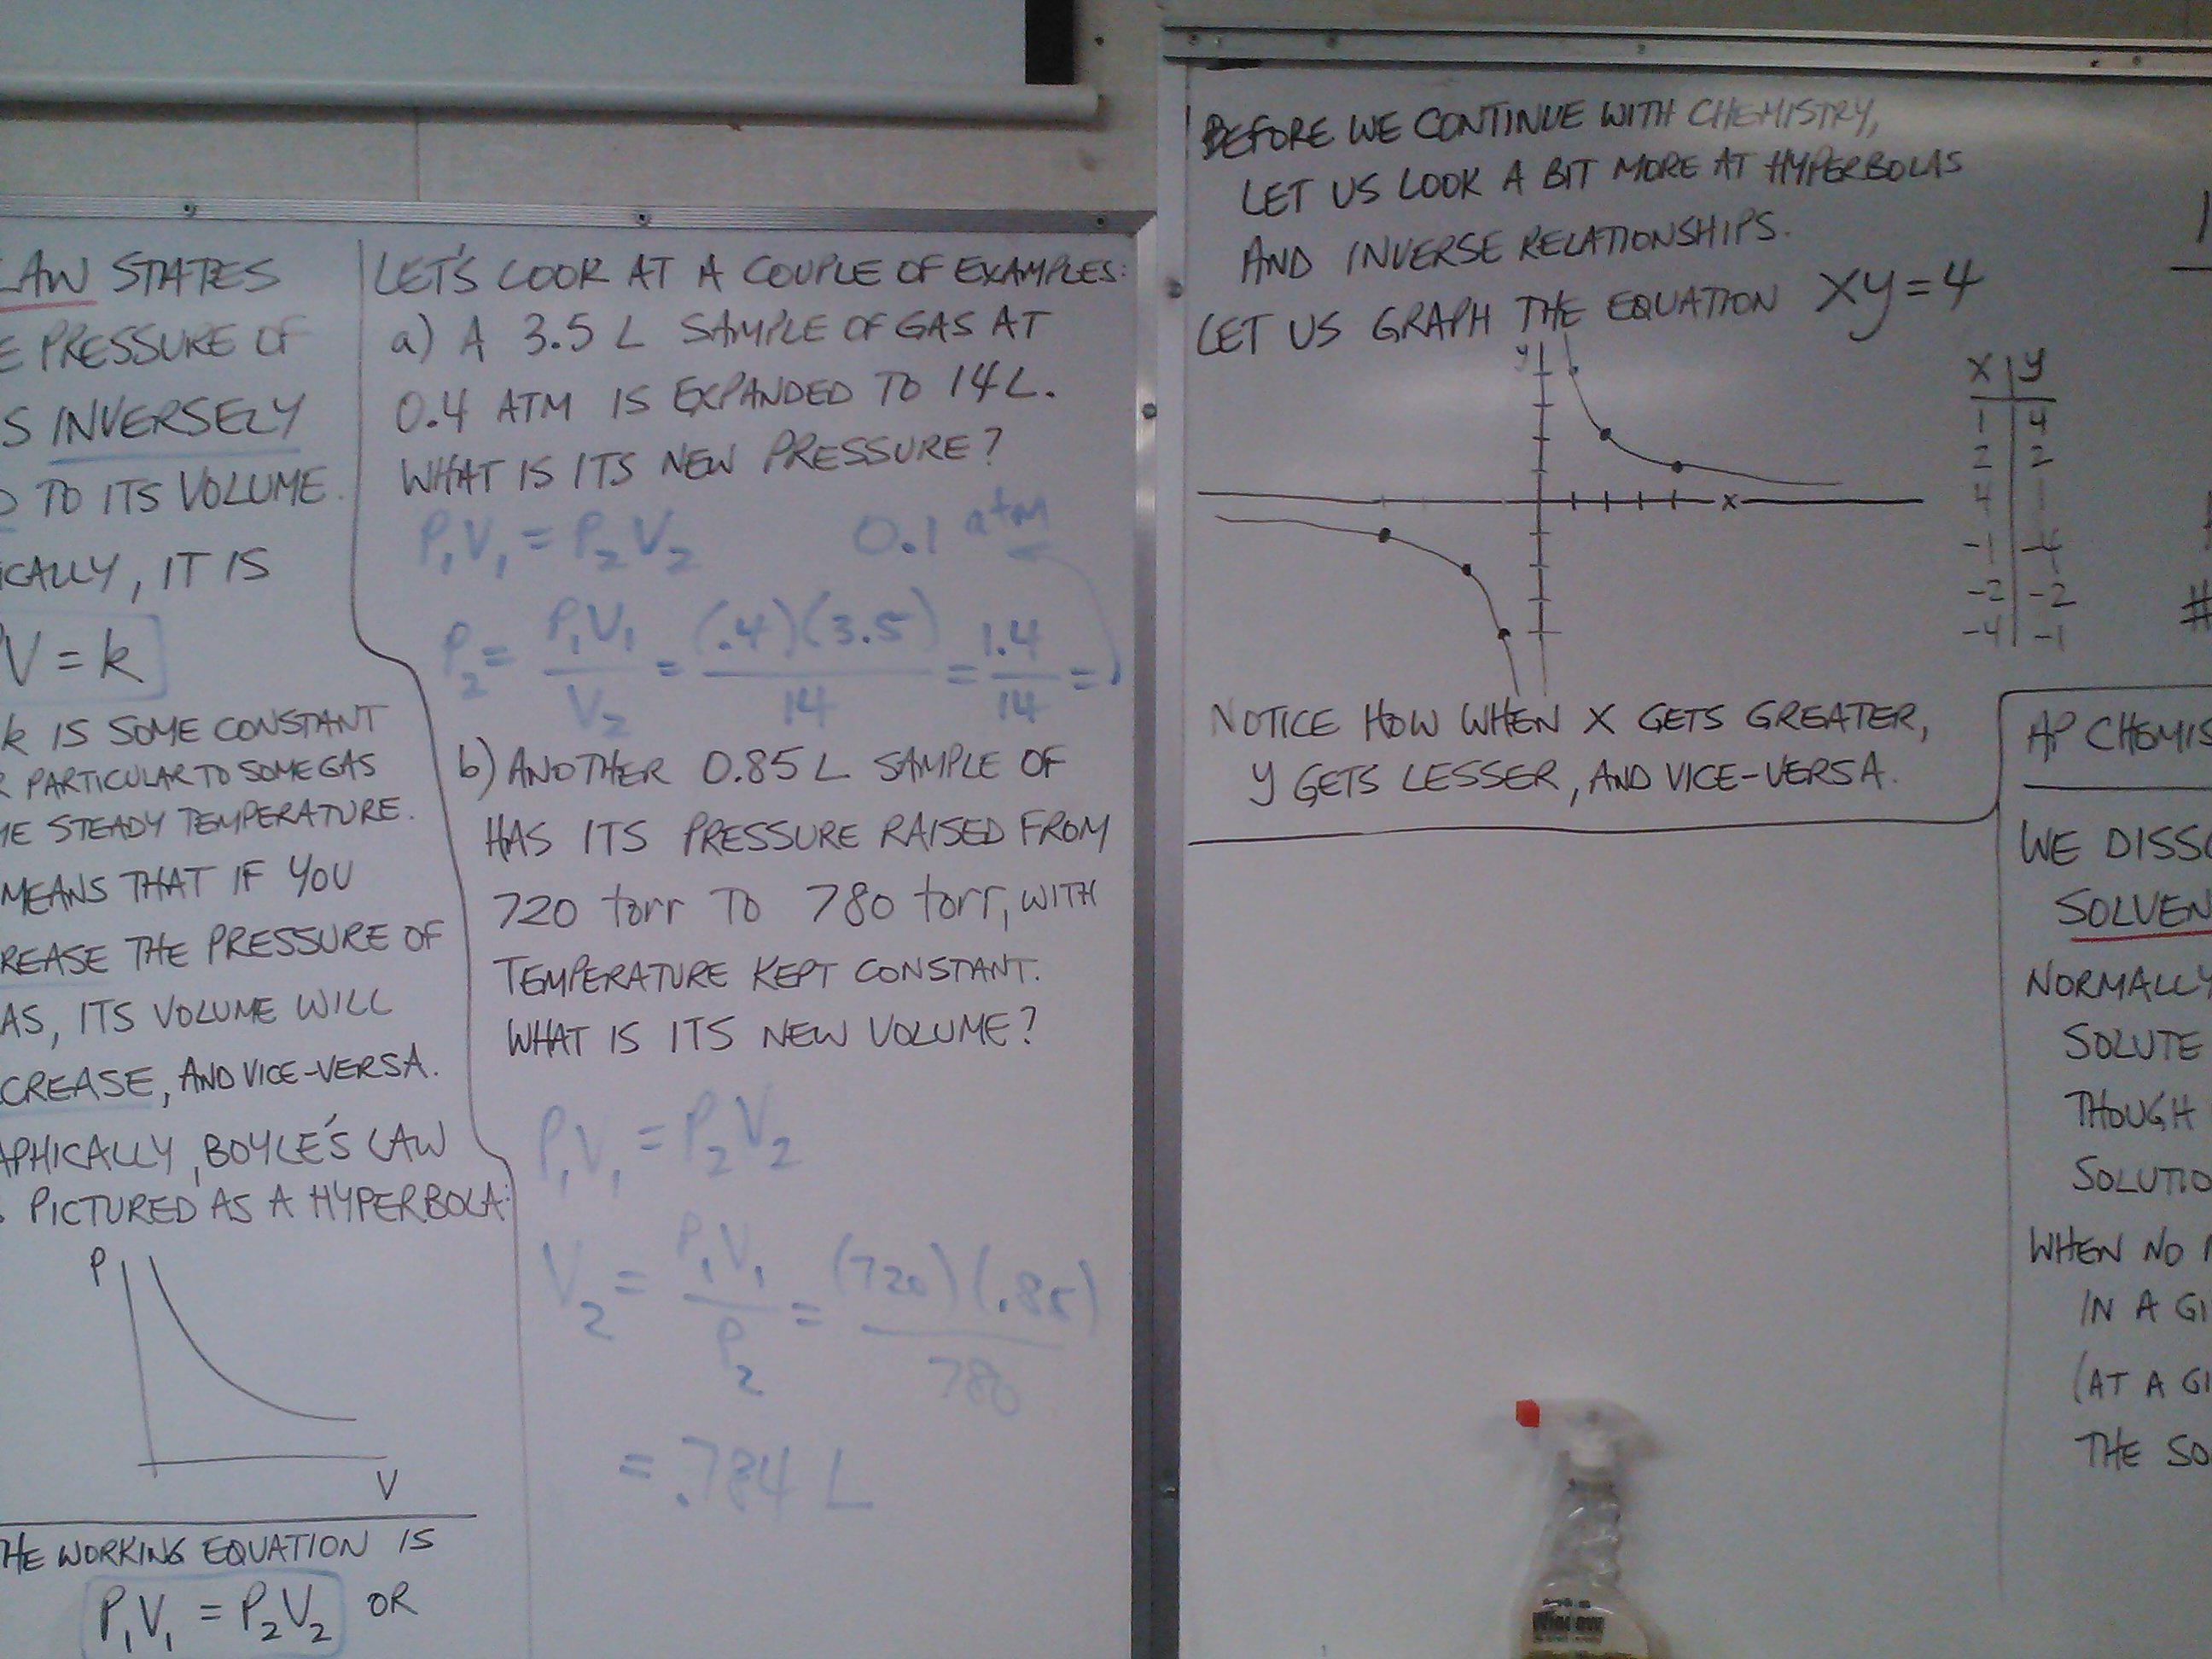 LAW STATES
E PRESSURE OF
S INVERSELY
D TO ITS VOLUME.
ICALLY, IT IS
V = k
k IS SOME CONSTANT
R PARTICULAR TO SOME GAS
ME STEADY TEMPERATURE.
MEANS THAT IF YOU
REASE THE PRESSURE OF
AS, ITS VOLUME WILL
CREASE, AND VICE-VERSA.
APHICALLY, BOYLE'S LAW
S PICTURED AS A HYPERBOLA:
P
V
HE WORKING EQUATION IS
P₁V₁ = P₂V₂ OR
LET'S LOOK AT A COUPLE OF EXAMPLES:
a) A 3.5 L SAMPLE OF GAS AT
0.4 ATM IS EXPANDED TO 14 L.
WHAT IS ITS NEW PRESSURE?
P₁V₁ = P₂V₂ 0.1 atm
P₂ = P₁V₁/V₂ = (.4)(3.5)/14 = 1.4/14 =
b) ANOTHER 0.85 L SAMPLE OF
HAS ITS PRESSURE RAISED FROM
720 torr TO 780 torr, WITH
TEMPERATURE KEPT CONSTANT.
WHAT IS ITS NEW VOLUME?
P₁V₁ = P₂V₂
V₂ = P₁V₁/P₂ = (720)(.85)/780
= .784 L
BEFORE WE CONTINUE WITH CHEMISTRY,
LET US LOOK A BIT MORE AT HYPERBOLAS
AND INVERSE RELATIONSHIPS.
LET US GRAPH THE EQUATION XY = 4
y
x
X | Y
1 | 4
2 | 2
4 | 1
-1 | -4
-2 | -2
-4 | -1
NOTICE HOW WHEN X GETS GREATER,
Y GETS LESSER, AND VICE-VERSA.
#
AP CHEMIS
WE DISSO
SOLVEN
NORMALLY
SOLUTE
THOUGH
SOLUTIO
WHEN NO
IN A GI
(AT A GI
THE SO